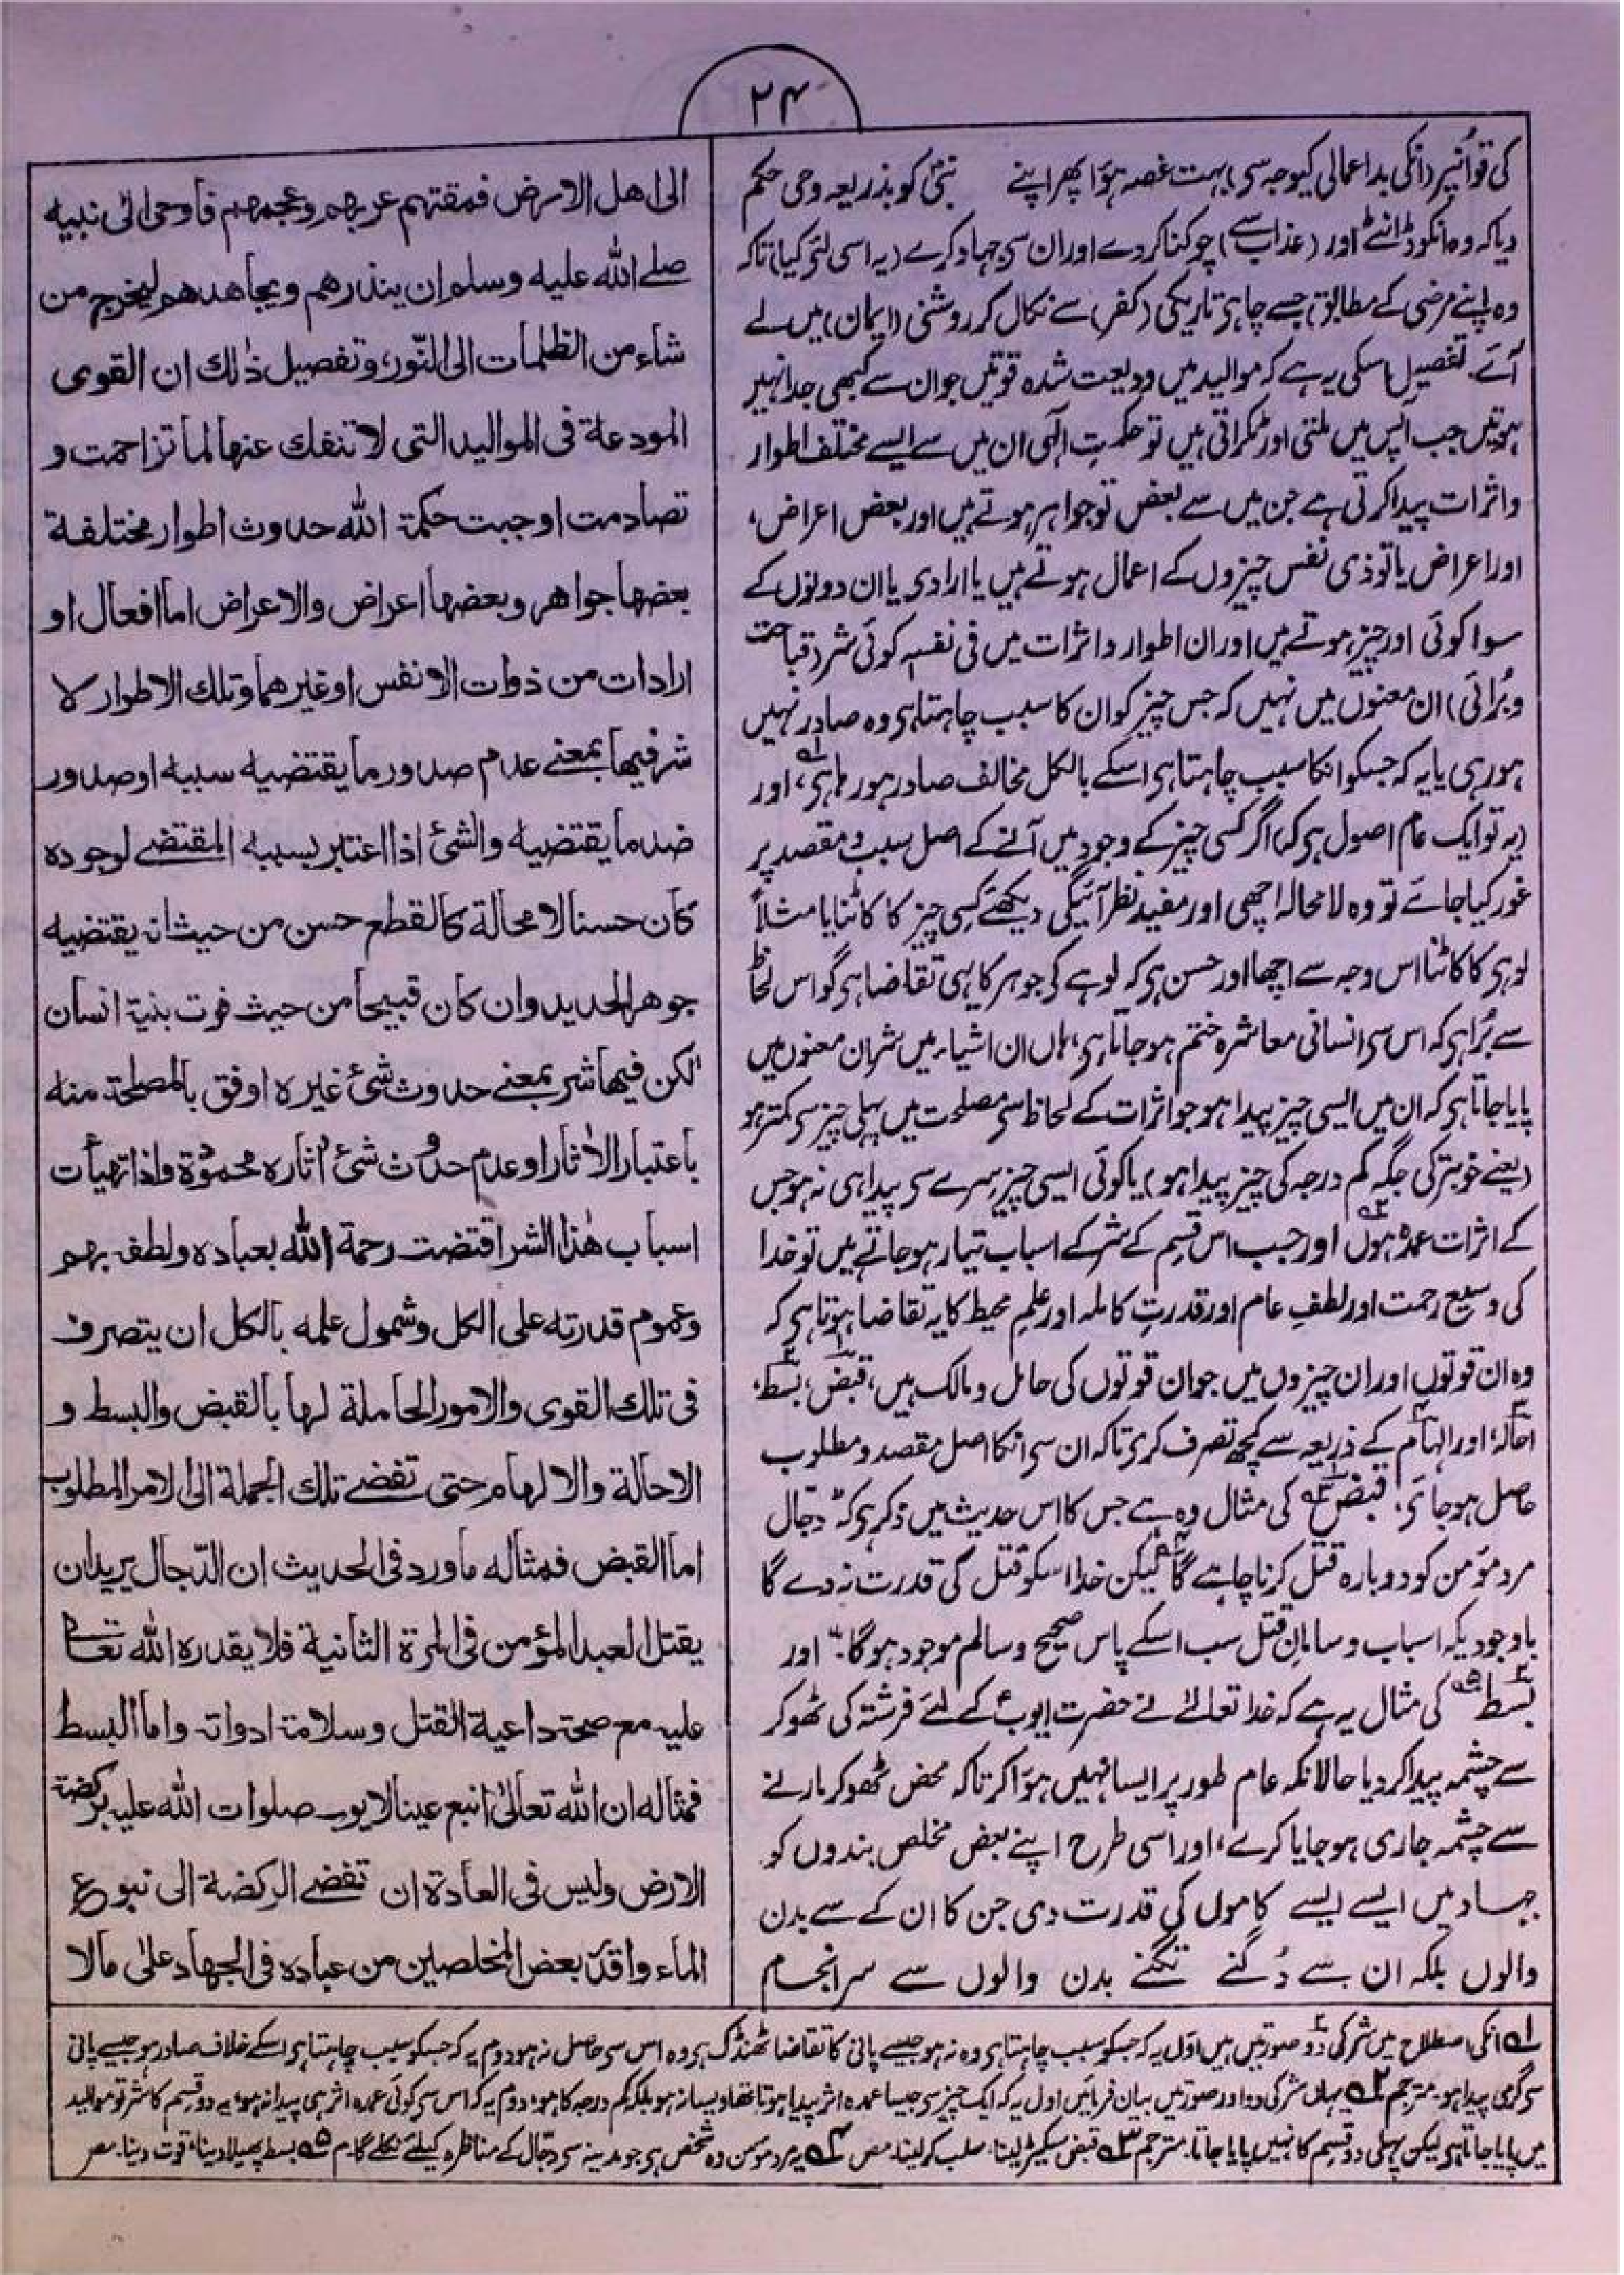 ۲۴
کی تو اُنپر (انکی بداعمالی کیوجہ سی) بہت غصہ ہوا پھر اپنے نبی کو بذریعہ وحی حکم
دیا کہ وہ انکو ڈانٹے اور (عذاب سے) چوکنا کردے اور ان سی جہاد کرے (یہ اسی لئے کیا) تاکہ
وہ اپنے مرضی کے مطابق جسے چاہی تاریکی (کفر) سے نکال کر روشنی (ایمان) میں لے
آئے۔ تفصیل اسکی یہ ہے کہ موالید میں ودیعت شدہ قوتیں جو ان سے کبھی جدا نہیں
ہوتیں جب آپس میں ملتی اور ٹکراتی ہیں تو حکمتِ الٰہی ان میں سے ایسے مختلف اطوار
و اثرات پیدا کرتی ہے جن میں سے بعض تو جواہر ہوتے ہیں اور بعض اعراض،
اور اعراض یا تو ذی نفس چیزوں کے اعمال ہوتے ہیں یا ارادی یا ان دونوں کے
سوا کوئی اور چیز ہوتے ہیں اور ان اطوار و اثرات میں فی نفسہٖ کوئی شر (قباحت
و بُرائی) ان معنوں میں نہیں کہ جس چیز کو ان کا سبب چاہتا ہی وہ صادر نہیں
ہو رہی یا یہ کہ جسکو انکا سبب چاہتا ہی اسکے بالکل مخالف صادر ہو رہا ہی لہ، اور
(یہ تو ایک عام اصول ہی کہ) اگر کسی چیز کے وجود میں آنے کے اصل سبب و مقصد پر
غور کیا جائے تو وہ لا محالہ اچھی اور مفید نظر آئیگی دیکھئے کسی چیز کا کاٹنا یا مثلاً
لوہی کا کاٹنا اس وجہ سے اچھا اور حسن ہی کہ لوہے کی جوہر کا یہی تقاضا ہی گو اس لحاظ
سے بُرا ہی کہ اس سی انسانی معاشرہ ختم ہو جاتا ہی، ہاں ان اشیاء میں شر ان معنوں میں
پایا جاتا ہی کہ ان میں ایسی چیز پیدا ہو جو اثرات کے لحاظ سی مصلحت میں پہلی چیز سی کمتر ہو
(یعنے خوبتر کی جگہ کم درجہ کی چیز پیدا ہو) یا کوئی ایسی چیز سرے سی پیدا ہی نہ ہو جس
کے اثرات عمدہ ہوں ۲ اور جب اس قسم کے شر کے اسباب تیار ہو جاتے ہیں تو خدا
کی وسیع رحمت اور لطفِ عام اور قدرتِ کاملہ اور علمِ محیط کا یہ تقاضا ہوتا ہی کہ
وہ ان قوتوں اور ان چیزوں میں جو ان قوتوں کی حامل و مالک ہیں، قبض، بسط،
احالہ، اور الہام کے ذریعہ سے کچھ تصرف کری تاکہ ان سی انکا اصل مقصد و مطلوب
حاصل ہو جائے، قبض ۳ کی مثال وہ ہے جس کا اس حدیث میں ذکر ہی کہ دجال
مرد مؤمن کو دوبارہ قتل کرنا چاہے گا ۴ لیکن خدا اسکو قتل کی قدرت نہ دے گا
باوجودیکہ اسباب و سامانِ قتل سب اسکے پاس صحیح و سالم موجود ہوگا۔" اور
بسط ۵ کی مثال یہ ہے کہ خدا تعالےٰ نے حضرت ایوبؑ کے لئے فرشتہ کی ٹھوکر
سے چشمہ پیدا کر دیا حالانکہ عام طور پر ایسا نہیں ہوا کرتا کہ محض ٹھوکر مارنے
سے چشمہ جاری ہو جایا کرے، اور اسی طرح اپنے بعض مخلص بندوں کو
جہاد میں ایسے ایسے کاموں کی قدرت دی جن کا ان کے سے بدن
والوں بلکہ ان سے دُگنے تگنے بدن والوں سے سرانجام
الی اهل الارض فمقتهم عربهم وعجمهم فأوحی الی نبیه
صلے الله علیه وسلم ان ینذرهم ویجاهدهم لیخرج من
شاء من الظلمات الی النّور، وتفصیل ذٰلك ان القوی
المودعة فی الموالید التی لا تنفك عنها لما تزاحمت و
تصادمت اوجبت حکمة الله حدوث اطوار مختلفة
بعضها جواهر وبعضها اعراض والاعراض اما افعال او
ارادات من ذوات الانفس او غیرهما وتلك الاطوار لا
شر فیها بمعنے عدم صدور ما یقتضیه سببه او صدور
ضد ما یقتضیه والشئ اذا اعتبر بسببه المقتضے لوجوده
کان حسنا لا محالة کالقطع حسن من حیث انه یقتضیه
جوهر الحدید وان کان قبیحا من حیث فوت بنیة انسان
لکن فیها شر بمعنے حدوث شئ غیره اوفق بالمصلحة منه
باعتبار الاٰثار او عدم حدوث شئ اٰثاره محمودة واذا تهیأت
اسباب هٰذا الشر اقتضت رحمة الله بعباده ولطفه بهم
وعموم قدرته علی الکل وشمول علمه بالکل ان یتصرف
فی تلك القوی والامور الحاملة لها بالقبض والبسط و
الاحالة والالهام حتی تفضے تلك الجملة الی الامر المطلوب
اما القبض فمثاله ما ورد فی الحدیث ان الدّجال یرید ان
یقتل العبد المؤمن فی المرة الثانیة فلا یقدره الله تعالی
علیه مع صحة داعیة القتل وسلامة ادواته واما البسط
فمثاله ان الله تعالیٰ انبع عینا لایوب صلوات الله علیه برکضة
الارض ولیس فی العادة ان تفضے الرکضة الی نبوع
الماء واقدر بعض المخلصین من عباده فی الجهاد علیٰ مالا
۱ انکی اصطلاح میں شر کی دو صورتیں ہیں اوّل یہ کہ جسکو سبب چاہتا ہی وہ نہ ہو جیسے پانی کا تقاضا ٹھنڈک ہی وہ اس سی حاصل نہ ہو دوم یہ کہ جسکو سبب چاہتا ہی اسکے خلاف صادر ہو جیسے پانی
سی گرمی پیدا ہو۔ مترجم ۲ یہاں شر کی دو اور صورتیں بیان فرمائیں اول یہ کہ ایک چیز سی جیسا عمدہ اثر پیدا ہوتا تھا ویسا نہ ہو بلکہ کم درجہ کا ہو، دوم یہ کہ اس سی کوئی عمدہ اثر ہی پیدا نہ ہو، یہ دو قسم کا شر تو موالید
میں پایا جاتا ہی لیکن پہلی دو قسم کا نہیں پایا جاتا۔ مترجم ۳ قبض سیکڑ لینا، صلب کر لینا۔ مص ۴ یہ مرد مومن وہ شخص ہی جو مدینہ سی دجّال کے مناظرہ کیلئے نکلے گا۔ م ۵ بسط پھیلا دینا، قوت دینا۔ مص